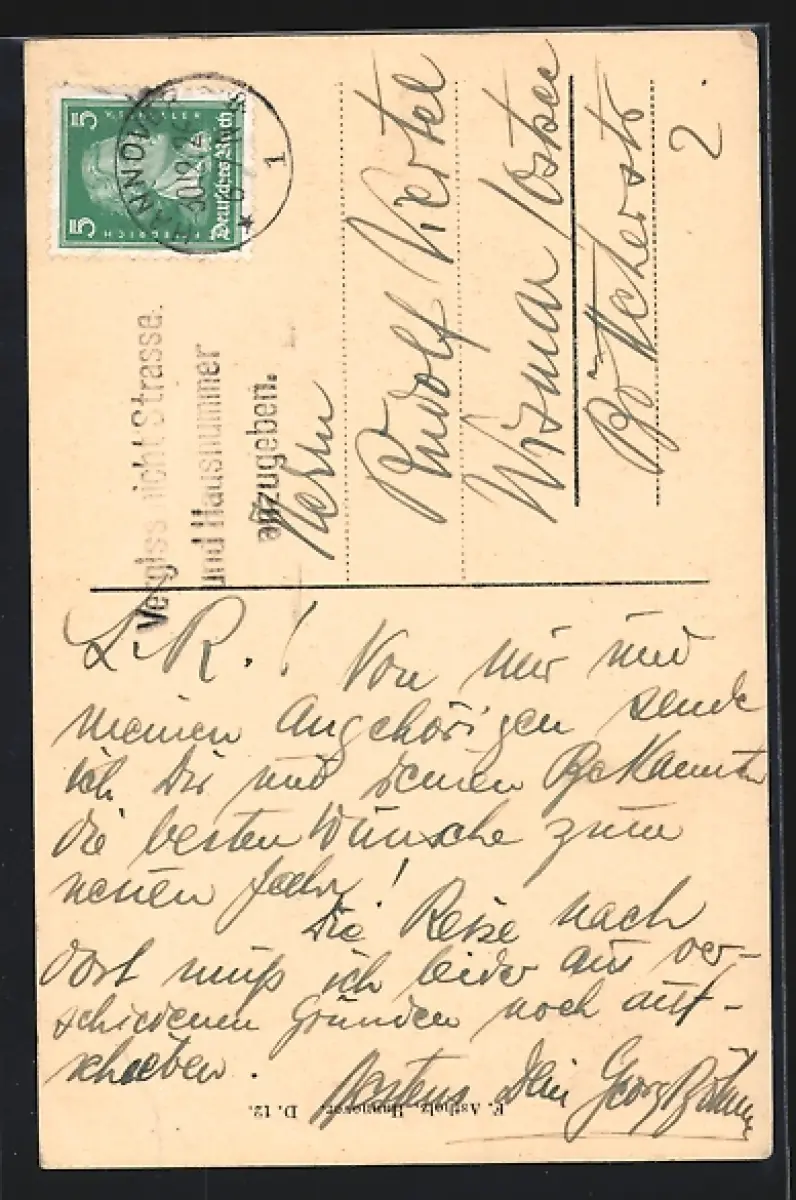 5 5
FRIEDRICH
Deutsches Reich
HANNOVER
1
Vergiss nicht Strasse
und Hausnummer
anzugeben.
Herrn
Rudolf Viertel
Wismar / Ostsee
Böttcherstr
2.
L. R.! Von mir und
meinen Angehörigen sende
ich Dir und deinen Bekannten
die besten Wünsche zum
neuen Jahr!
Die Reise nach
dort muß ich leider aus ver-
schiedenen Gründen noch auf-
schieben.
Bestens Dein Georg Böhme
F. Astholz, Hannover. D. 12.